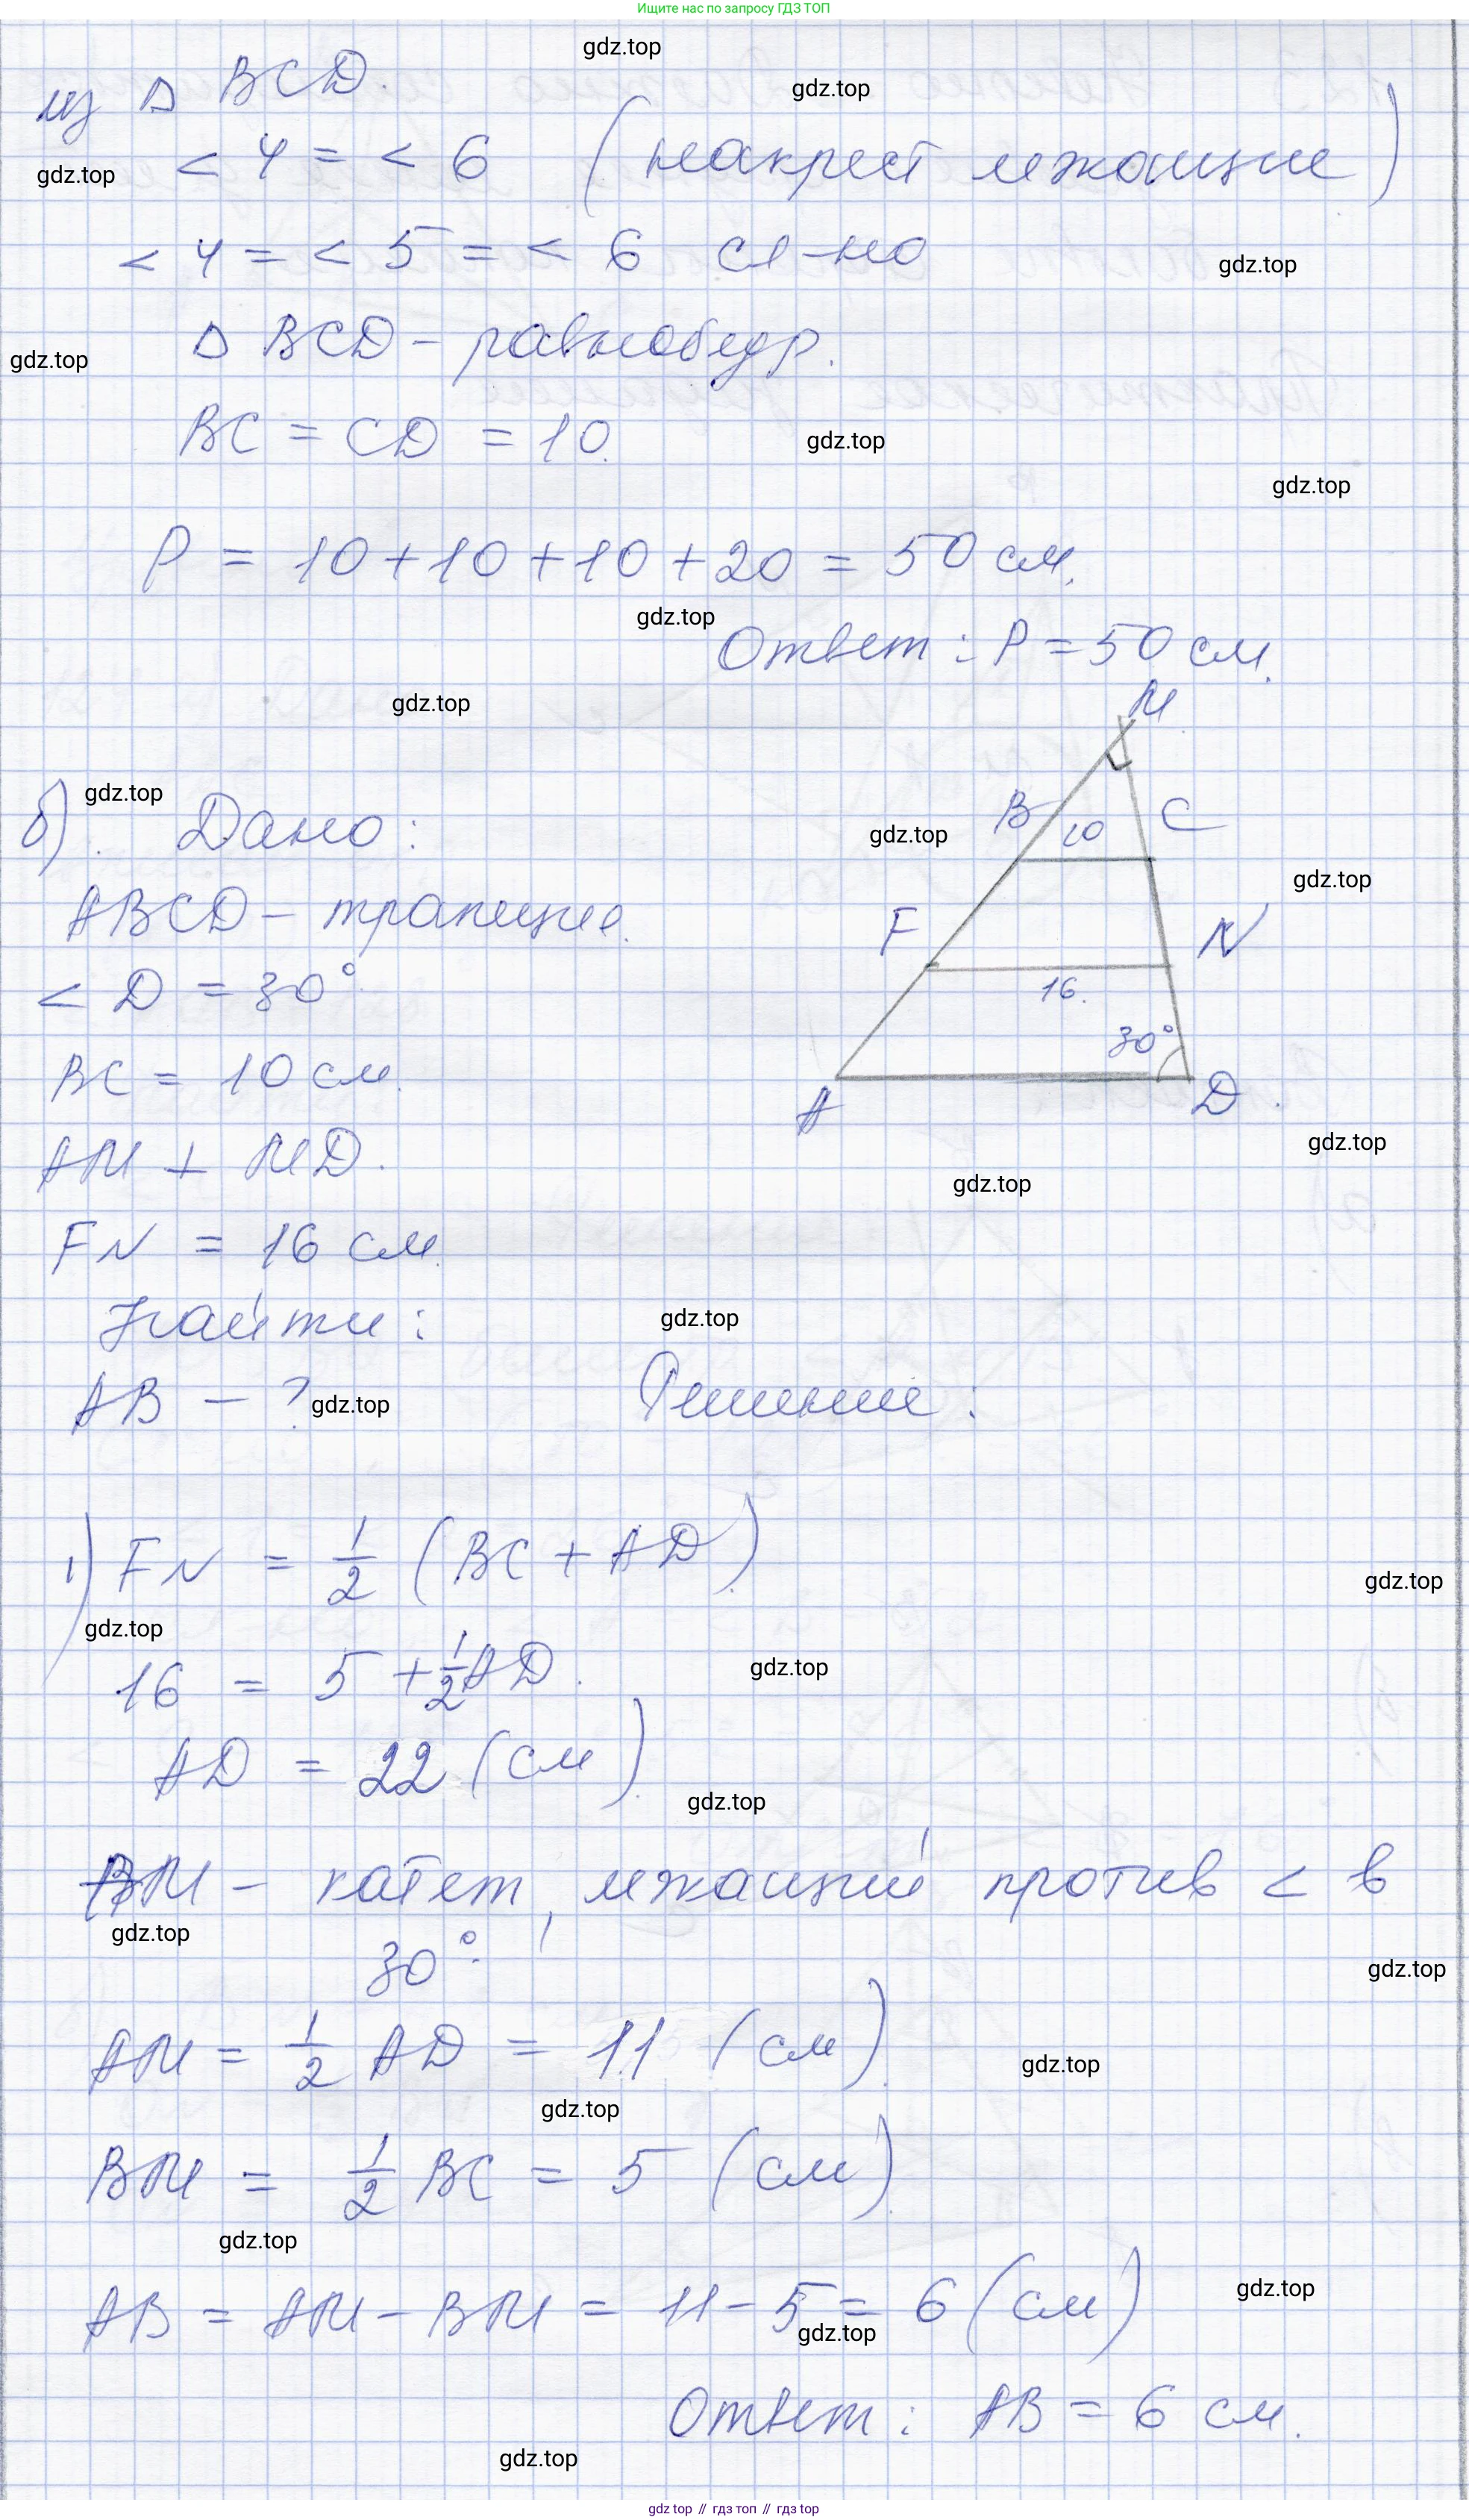 Ищите нас по запросу ГДЗ ТОП
gdz.top
из △ BCD.
gdz.top
< 4 = < 6 (накрест лежащие)
gdz.top
< 4 = < 5 = < 6 сл-но
gdz.top
△ BCD – равнобедр.
gdz.top
BC = CD = 10.
gdz.top
gdz.top
P = 10 + 10 + 10 + 20 = 50 см.
gdz.top
Ответ: P = 50 см.
gdz.top
M
б). Дано:
gdz.top
B 10 C
gdz.top
gdz.top
ABCD – трапеция.
F N
< D = 30°
16.
30°
BC = 10 см.
A D.
gdz.top
AM ⊥ MD.
gdz.top
FN = 16 см.
Найти:
gdz.top
AB – ?
gdz.top
Решение:
1) FN = 1/2 (BC + AD).
gdz.top
gdz.top
16 = 5 + 1/2 AD.
gdz.top
AD = 22 (см).
gdz.top
AM – катет, лежащий против < в
gdz.top
30°.
gdz.top
AM = 1/2 AD = 11 (см).
gdz.top
gdz.top
BM = 1/2 BC = 5 (см).
gdz.top
AB = AM – BM = 11 – 5 = 6 (см)
gdz.top
gdz.top
Ответ: AB = 6 см.
gdz.top
gdz top // гдз топ // гдз top